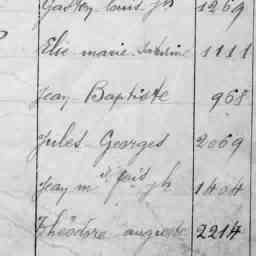 Louis Jh 1269
Elie marie 1111
Jean Baptiste 968
Jules Georges 2069
Jean m jh 1404
Théodore auguste 2214